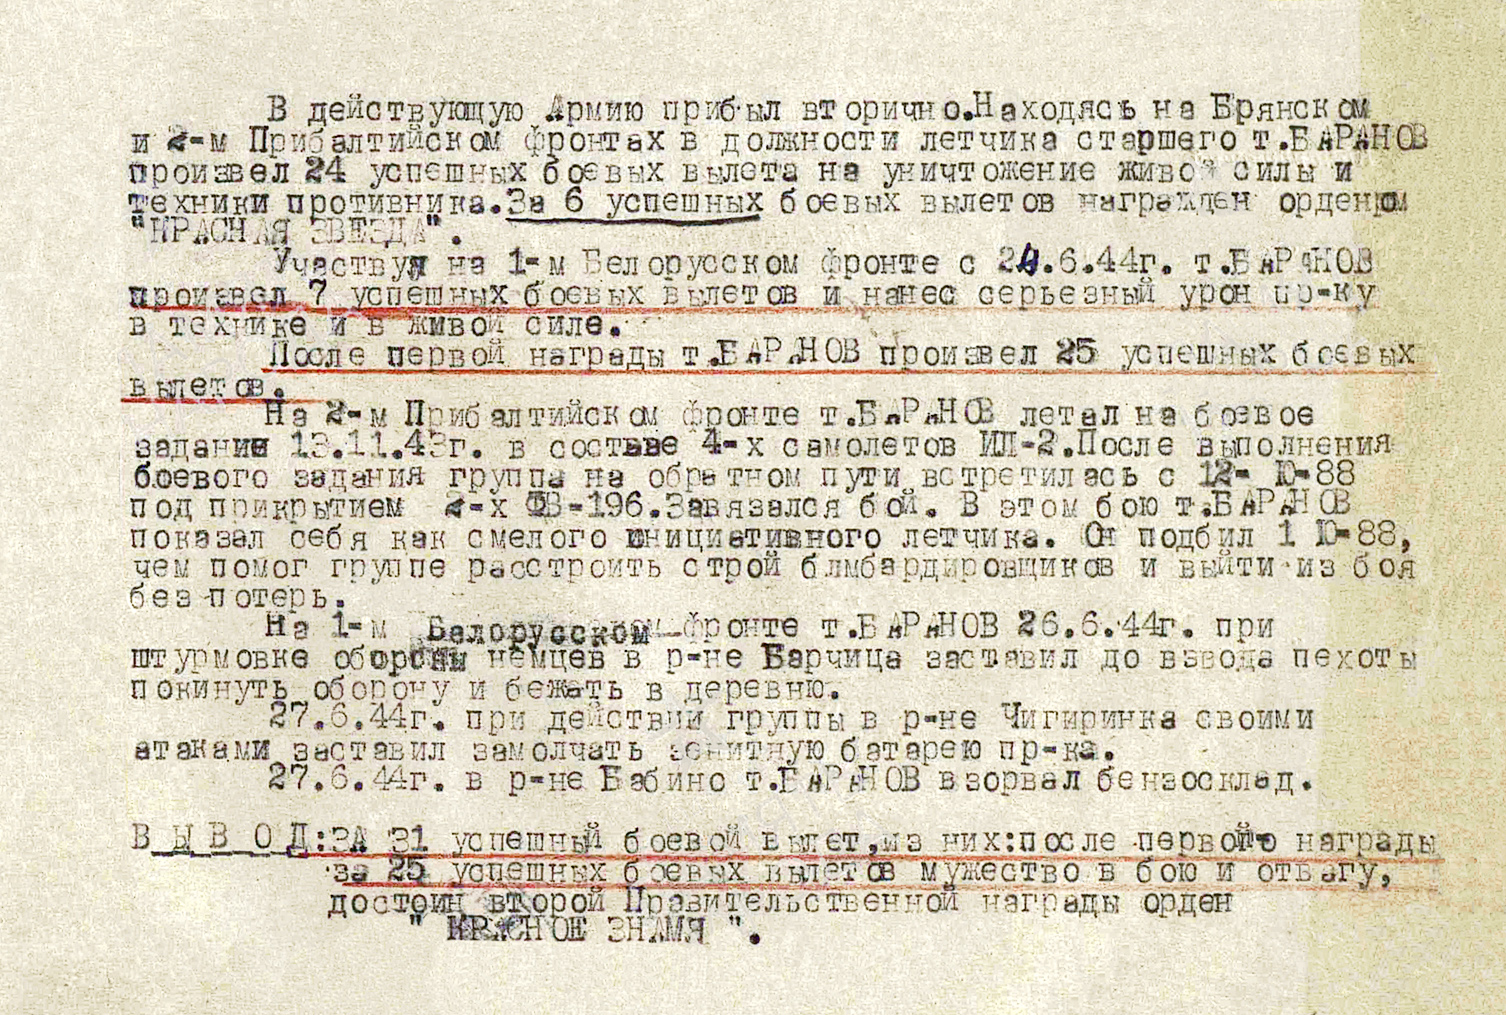 В действующую Армию прибыл вторично.Находясь на Брянском
и 2-м Прибалтийском фронтах в должности летчика старшего т.БАРАНОВ
произвел 24 успешных боевых вылета на уничтожение живой силы и
техники противника.За 6 успешных боевых вылетов награжден орденом
"КРАСНАЯ ЗВЕЗДА".
Участвуя на 1-м Белорусском фронте с 24.6.44г. т.БАРАНОВ
произвел 7 успешных боевых вылетов и нанес серьезный урон пр-ку
в технике и в живой силе.
После первой награды т.БАРАНОВ произвел 25 успешных боевых
вылетов.
На 2-м Прибалтийском фронте т.БАРАНОВ летал на боевое
задание 13.11.43г. в составе 4-х самолетов ИЛ-2.После выполнения
боевого задания группа на обратном пути встретилась с 12- Ю-88
под прикрытием 2-х ФВ-196.Завязался бой. В этом бою т.БАРАНОВ
показал себя как смелого инициативного летчика. Он подбил 1 Ю-88,
чем помог группе расстроить строй блмбардировщиков и выйти из боя
без потерь.
На 1-м Белорусском фронте т.БАРАНОВ 26.6.44г. при
штурмовке обороны немцев в р-не Барчица заставил до взвода пехоты
покинуть оборону и бежать в деревню.
27.6.44г. при действии группы в р-не Чигиринка своими
атаками заставил замолчать зенитную батарею пр-ка.
27.6.44г. в р-не Бабино т.БАРАНОВ взорвал бензосклад.
В Ы В О Д:ЗА 31 успешный боевой вылет,из них:после первой награды
за 25 успешных боевых вылетов мужество в бою и отвагу,
достоин второй Правительственной награды орден
" КРАСНОЕ ЗНАМЯ ".